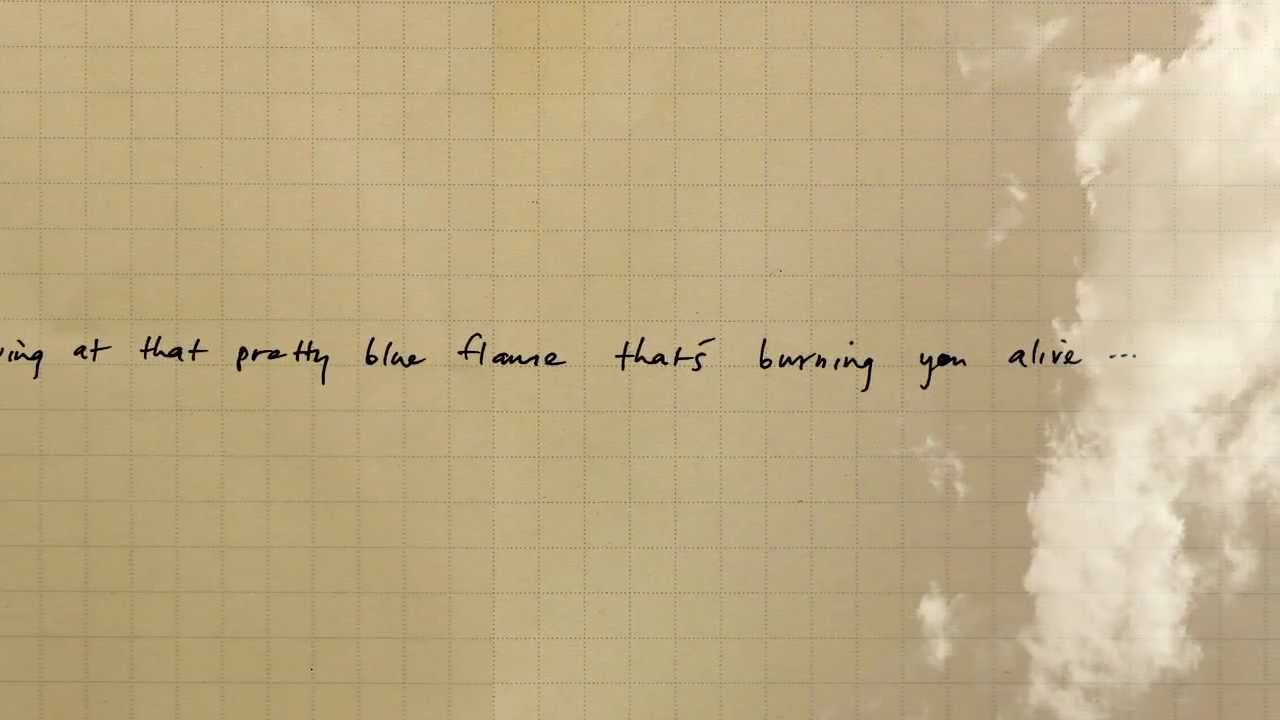 at that pretty blue flame that's burning you alive ...